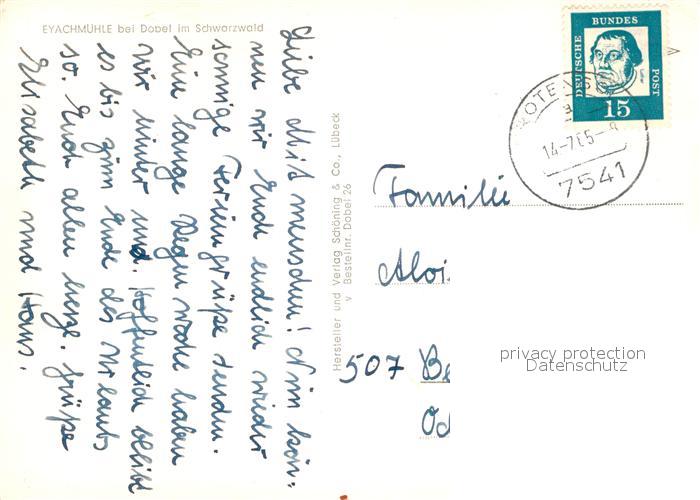 EYACHMÜHLE bei Dobel im Schwarzwald
Liebe Mitmenschen! Nun kön-
nen wir Euch endlich wieder
sonnige Feriengrüße senden.
Eine lange Regenwoche haben
wir hinter uns. Hoffentlich bleibt
es bis zum Ende des Urlaubs
so. Euch allen herzl. Grüße
Elisabeth und Hans.
Hersteller und Verlag Schöning & Co., Lübeck
v Bestellnr. Dobel 26
DEUTSCHE BUNDES POST
15
14-7
7541
Familie
Aloi
507 Be
Od
privacy protection
Datenschutz